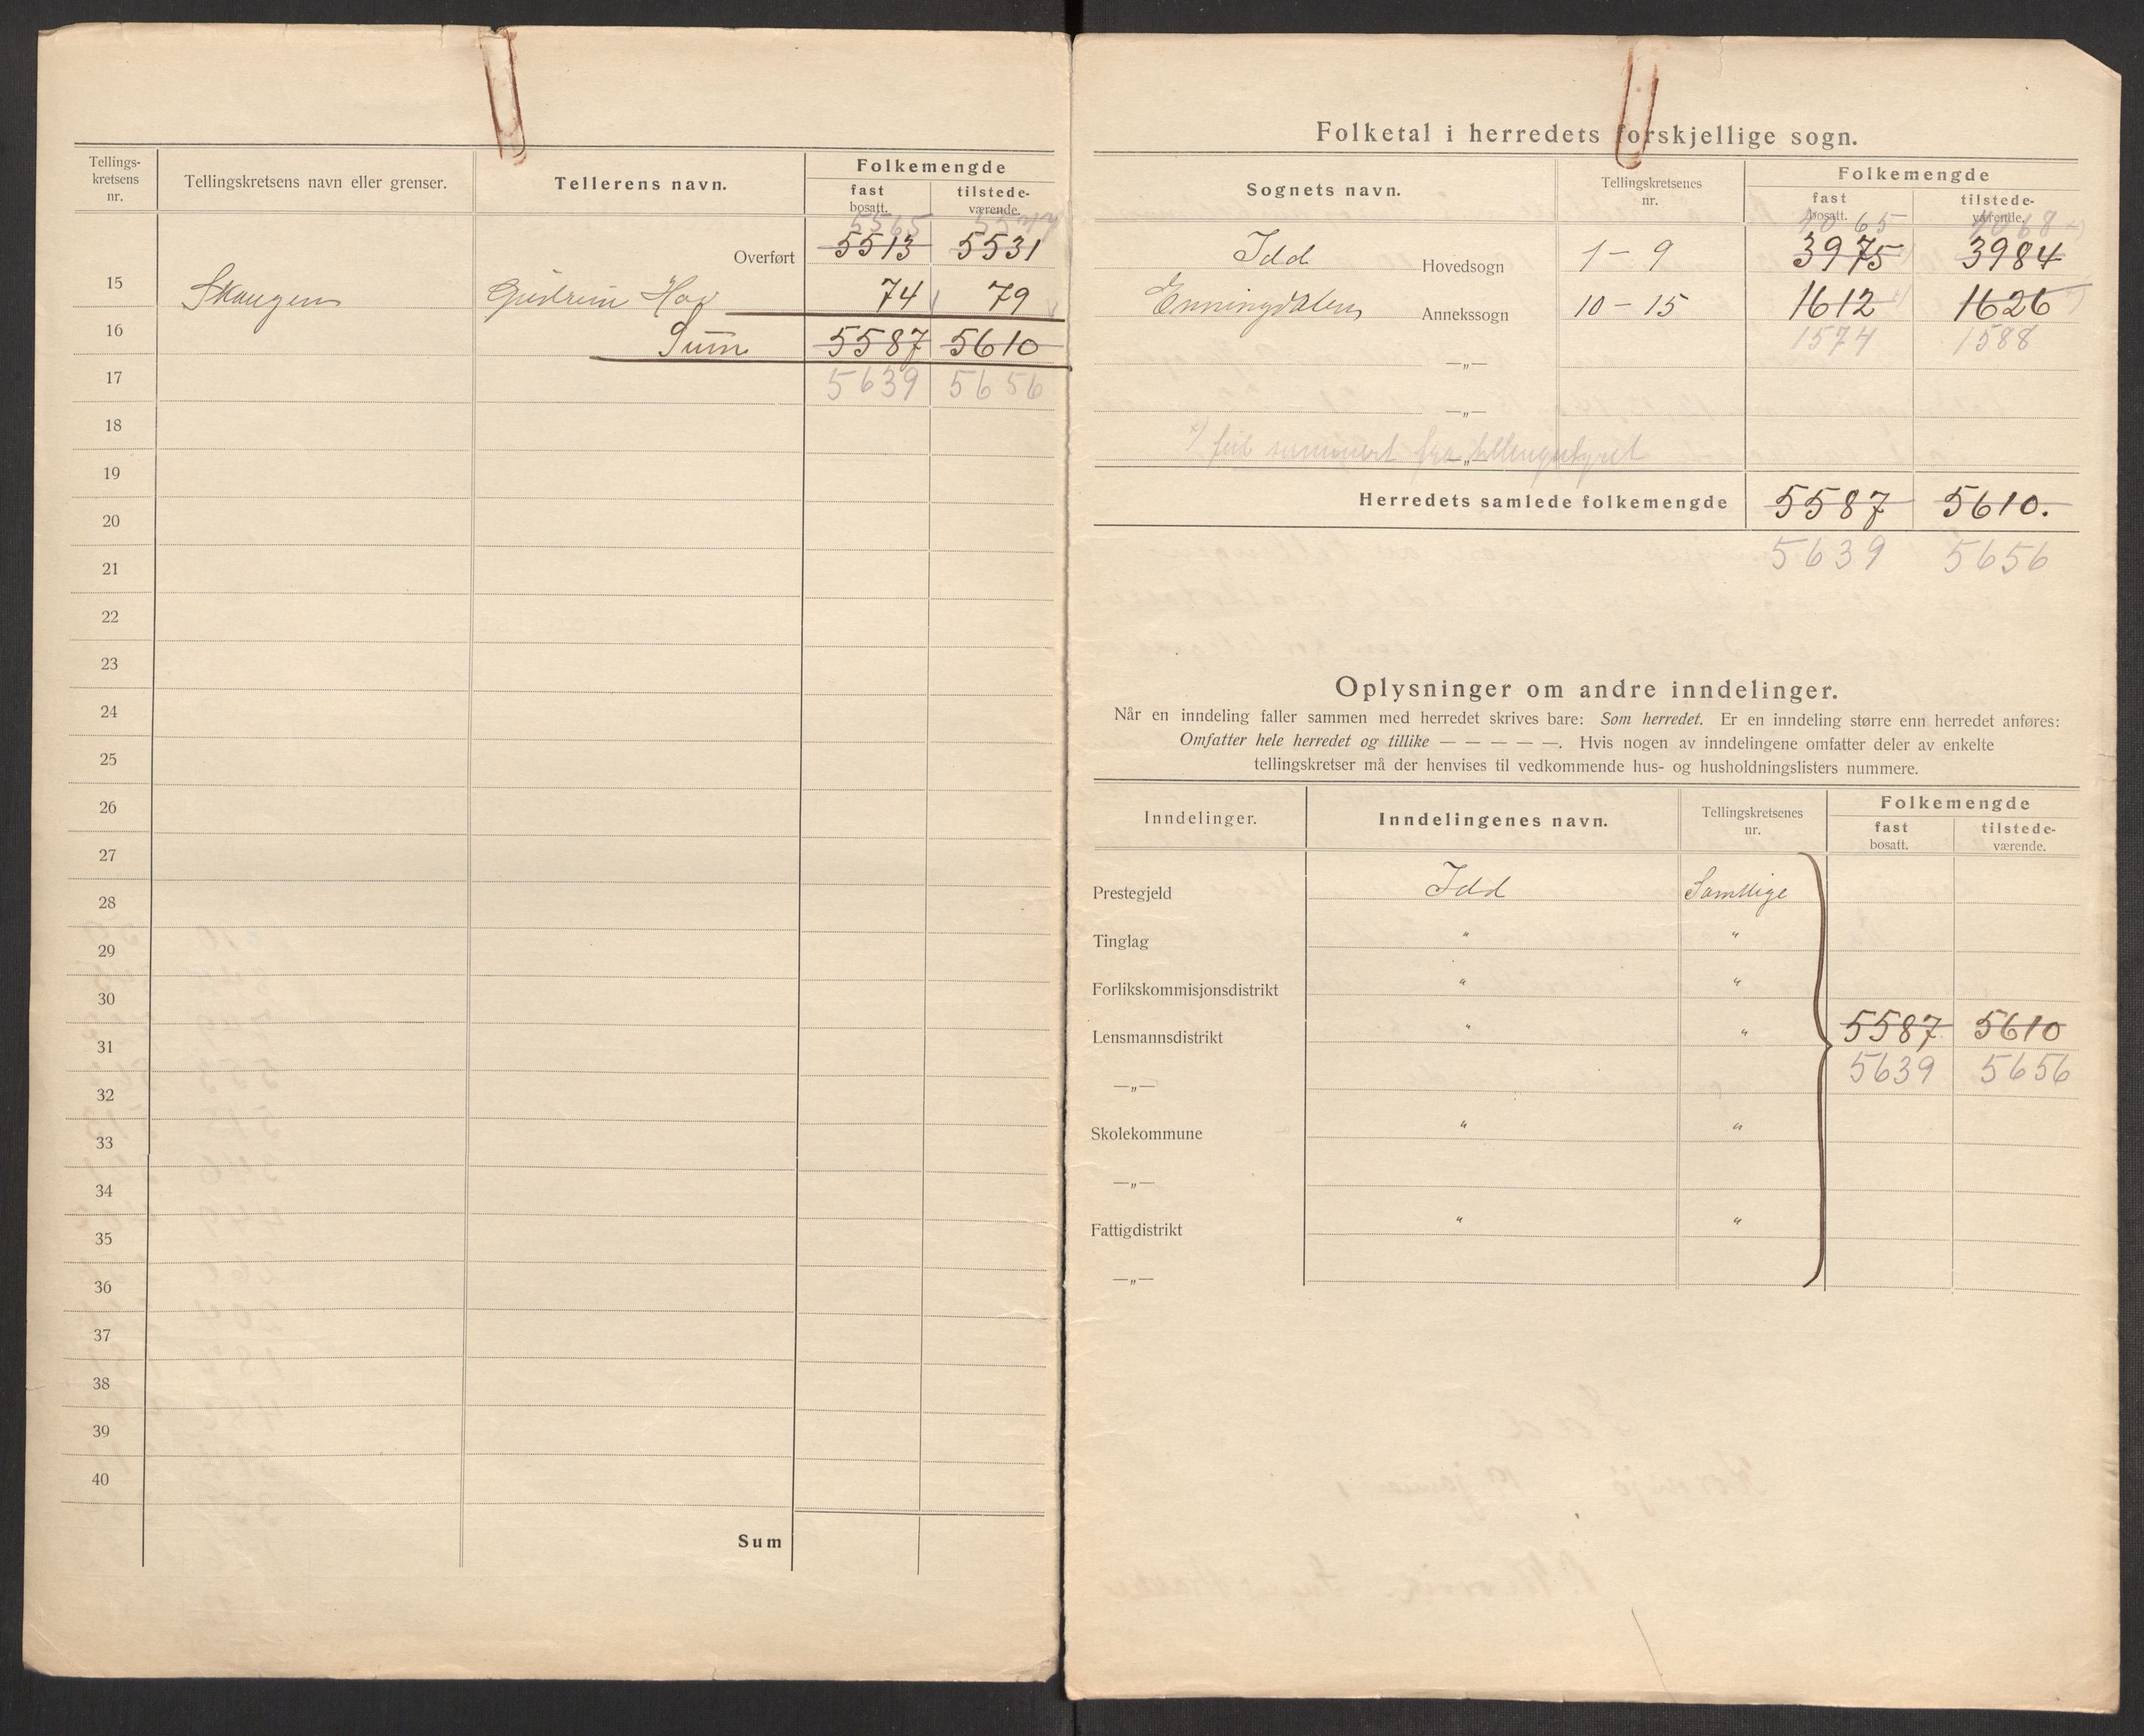 Tellings-
kretsens
nr.
Tellingskretsens navn eller grenser.
Tellerens navn.
Folkemengde
fast
bosatt.
tilstede-
værende.
5565 5577
Overført 5513 5531
15 Skaugen Gudrun Hov 74 79
16 Sum 5587 5610
17 5639 5656
18
19
20
21
22
23
24
25
26
27
28
29
30
31
32
33
34
35
36
37
38
39
40
Sum
Folketal i herredets forskjellige sogn.
Sognets navn.
Tellingskretsenes
nr.
Folkemengde
fast
bosatt.
tilstede-
værende.
4065 4068
Idd Hovedsogn 1 – 9 3975 3984
Enningdalen Annekssogn 10 – 15 1612 1626
1574 1588
—„—
—„—
x) feil summert fra tellingsstyret
—„—
Herredets samlede folkemengde 5587 5610.
5639 5656
Oplysninger om andre inndelinger.
Når en inndeling faller sammen med herredet skrives bare: Som herredet. Er en inndeling større enn herredet anføres:
Omfatter hele herredet og tillike — — — — —. Hvis nogen av inndelingene omfatter deler av enkelte
tellingskretser må der henvises til vedkommende hus- og husholdningslisters nummere.
Inndelinger.
Inndelingenes navn.
Tellingskretsenes
nr.
Folkemengde
fast
bosatt.
tilstede-
værende.
Prestegjeld Idd Samtlige
Tinglag " "
Forlikskommisjonsdistrikt " "
Lensmannsdistrikt " " 5587 5610
—„— 5639 5656
Skolekommune " "
—„—
Fattigdistrikt " "
—„—